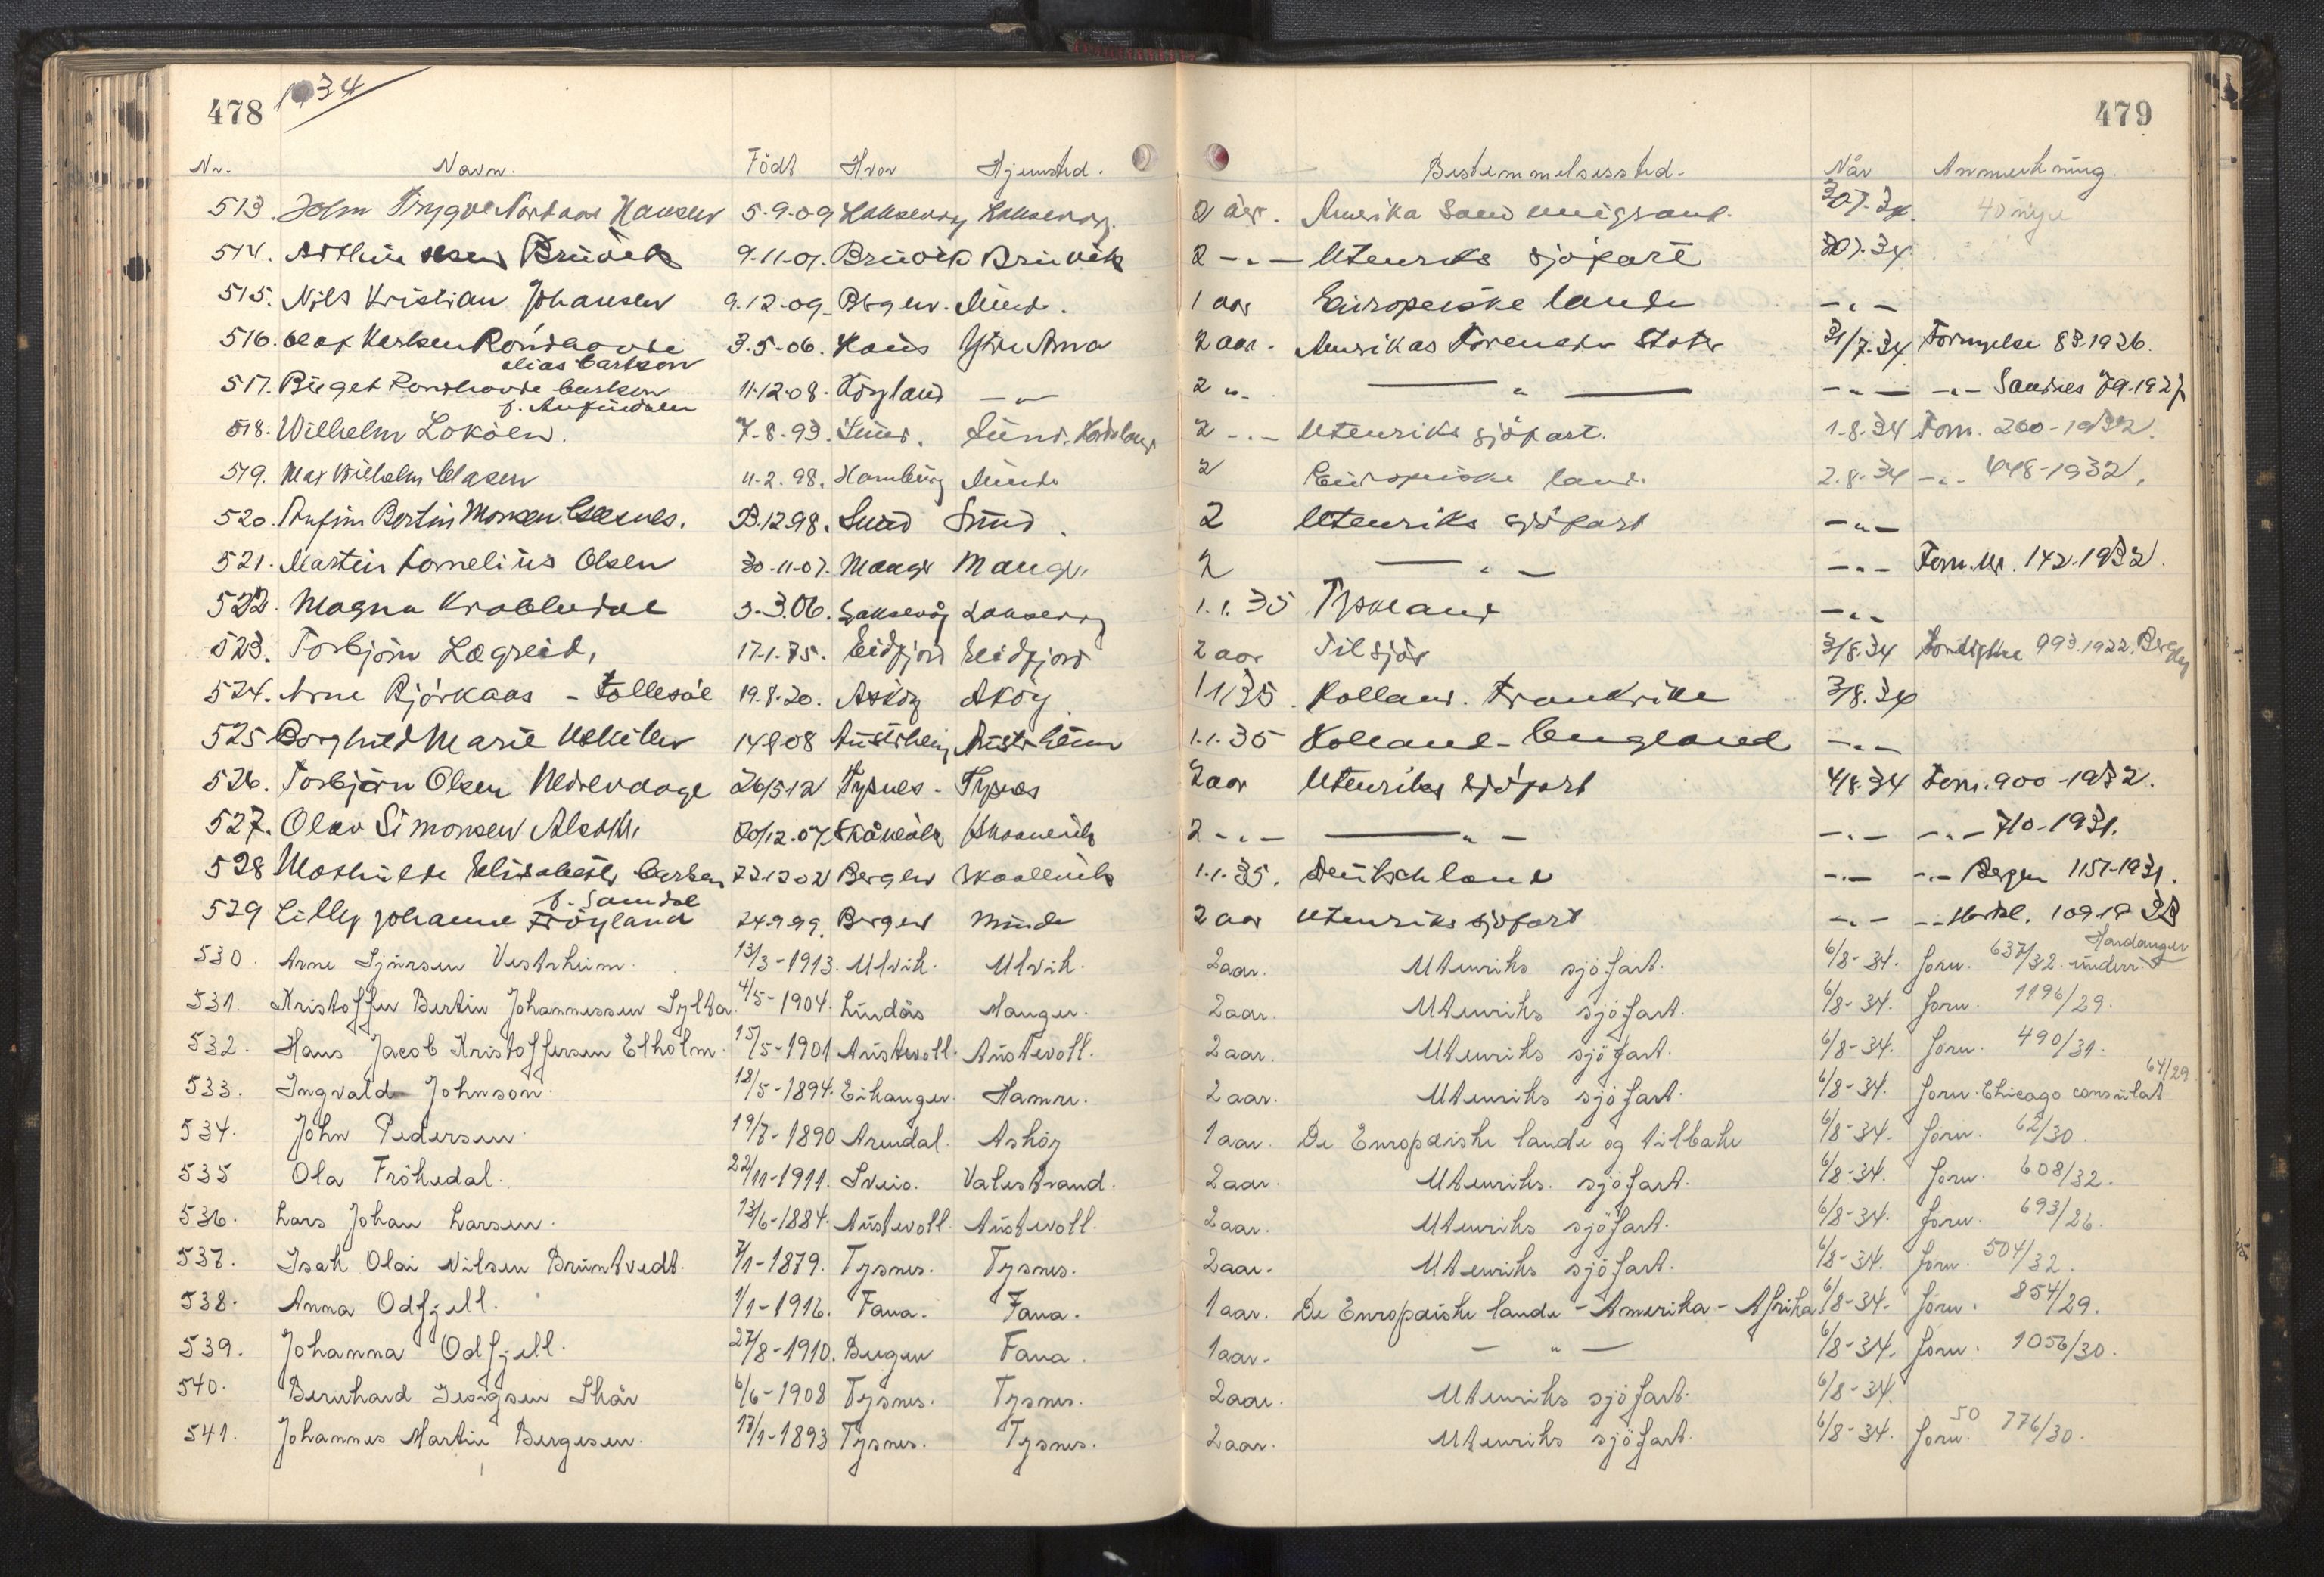 478 1934
479
Nr. Navn. Födt Hvor Hjemsted. Bestemmelsessted. Når Anmerkning.
513. John Trygve Hansen 5-9-09 Laksevaag Laksevaag. 2 aar. Amerika som emigrant. 30.7.34. 40 nye
514. Brüvik 9-11-07. Brüvik Brüvik 2 -"- Utenriks sjöfart 30.7.34
515. Nils Kristian Johansen 9.12-09 Bergen. Minde. 1 aar Europeiske lande -"-
516. Olaf Karlsen Röndhovde 3.5-06. Haus Ytre Arna 2 aar. Amerikas Forenede Stater 31/7.34 Fornyelse 83.1926.
alias Carlson
517. Birget Rondhovde Carlson 11-12-08. Högland -"- 2 "- -"- -"- -"- Sandnes 79.1927
f. Anfindsen
518. Wilhelm Loköen. 7-8-93. Sund. Sund. Hordaland 2 -"- Utenriks sjöfart. 1-8-34 Forn. 260-1932.
519. Max Wilhelm Clasen 11-2.98. Hamburg Minde 2 Europeiske land. 2.8.34 -"- 448-1932.
520. Anfinn Bertin Monsen 23.12.98. Sund Sund. 2 Utenriks sjöfart -"-
521. Martin Kornelius Olsen 30-11-07. Manger Manger. 2 -"- -"- Forn. Nr. 142.1932.
522. Magna Krabbedal 3-3.06. Laksevåg Laksevåg 1.1.35 Tyskland -"-
523. Torbjörn Lægreid, 17-1.75. Eidfjord Eidfjord 2 aar Til sjös 3/8.34 993.1922. Bergen
524. Arne Björkaas - Follesöe 19.8.20. Asköy Asköy. 1.1.35. Holland. Frankrike 3/8.34
525 Borghild Marie 14908 Austrheim Austrheim 1.1.35 Holland-England -"-
526. Torbjörn Olsen Nedrevaage 26/5-12 Tysnes - Tysnes 2 aar Utenriks sjöfart 4/8.34 Forn. 900-1932.
527. Olav Simonsen 20/12.07. Skånevik Skaanevik 2 -"- -"- -"- -"- 710-1931.
528 Mathilde Elisabeth Carlsen 22.12 02 Bergen Skaanevik 1.1.35. Deutschland -"- -"- Bergen 1151-1931.
f. Samdal
529 Lilly Johanne Fröyland 24.9.99. Bergen Minde 2 aar Utenriks sjöfart -"- -"- Hordal. 109 19 32
530. Arne Sjursen Vestrheim. 13/3-1913. Ulvik. Ulvik. 2 aar. Utenriks sjöfart. 6/8-34. forn. 637/32. Hardanger underr.
531. Kristoffer Bertin Johannessen Sylta. 4/5-1904. Lindås Manger. 2 aar. Utenriks sjöfart. 6/8-34. forn. 1196/29.
532. Hans Jacob Kristoffersen Elholm. 15/5-1901 Austevoll. Austevoll. 2 aar. Utenriks sjöfart. 6/8-34. forn. 490/31.
533. Ingvald Johnson. 18/5-1894. Eikanger. Hamre. 2 aar. Utenriks sjöfart. 6/8-34. forn. Chicago consulat 64/29
534. John Pedersen. 19/7-1890 Arendal. Asköy 1 aar. De Europæiske lande og tilbake 6/8-34. forn. 62/30.
535 Ola Frökedal. 22/11-1911. Sveio. Valestrand. 2 aar. Utenriks. sjöfart. 6/8-34. forn. 608/32.
536. Lars Johan Larsen. 13/6-1884. Austevoll. Austevoll. 2 aar. Utenriks sjöfart. 6/8-34. forn. 693/26.
537. Isak Olai Nilsen Bruntvedt. 7/1-1879. Tysnes. Tysnes. 2 aar. Utenriks sjöfart. 6/8-34. forn. 504/32.
538. Anna Odfjell. 1/1-1916. Fana. Fana. 1 aar. De Europæiske lande - Amerika - Afrika 6/8-34. forn. 854/29.
539. Johanna Odfjell. 27/8-1910. Bergen Fana. 1 aar. - " - 6/8-34. forn. 1056/30.
540. Bernhard Georgsen Skår 6/6-1908 Tysnes. Tysnes. 2 aar. Utenriks sjöfart. 6/8-34.
541. Johannes Martin Bergesen. 17/1-1893 Tysnes. Tysnes. 2 aar. Utenriks sjöfart. 6/8-34. forn. 50 776/30.